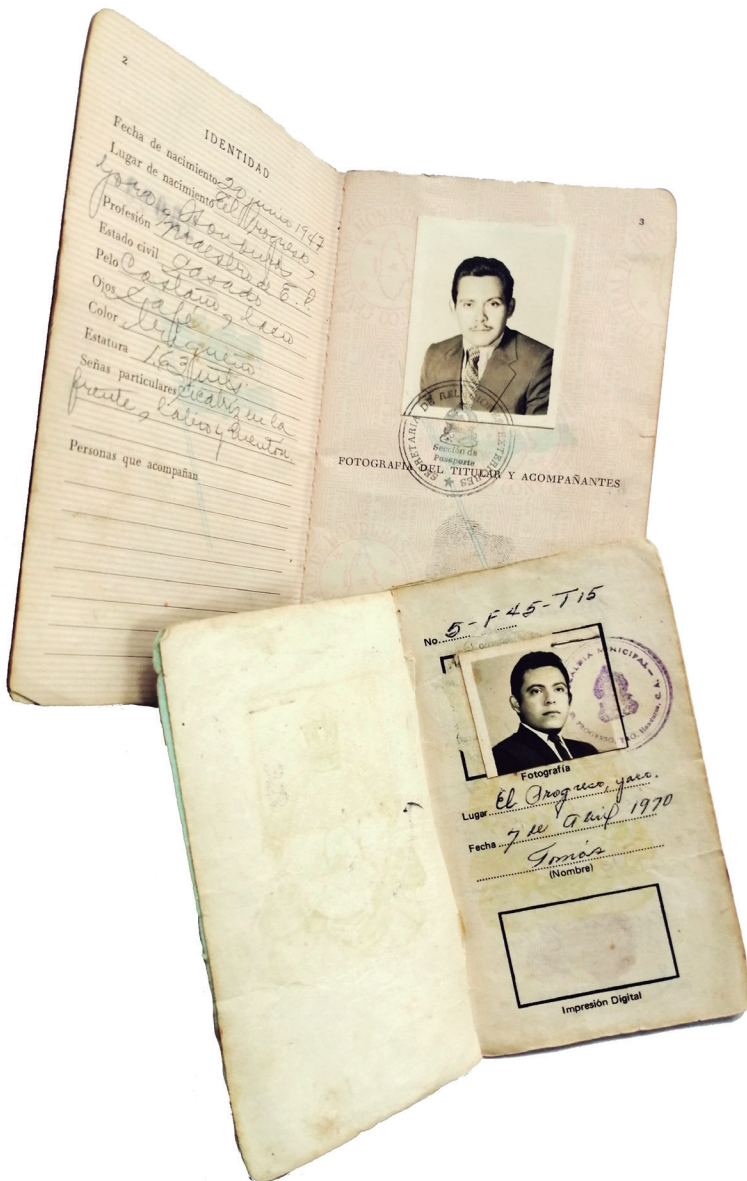 2
IDENTIDAD
Fecha de nacimiento 20 junio 1947
Lugar de nacimiento El Progreso,
Yoro, Honduras
Profesión Maestro de E. P.
Estado civil Casado
Pelo Castaño y laco
Ojos Café
Color Trigueño
Estatura 1.63
Señas particulares Cicatriz en la
frente,
Personas que acompañan
3
SECRETARIA DE RELACIONES EXTERIORES
Sección de
Pasaporte
FOTOGRAFIA DEL TITULAR Y ACOMPAÑANTES
No. 5-F45-T15
ALCALDIA MUNICIPAL
EL PROGRESO, YORO, Honduras, C. A.
Fotografía
Lugar El Progreso, Yoro.
Fecha 7 de Abril 1970
Tomás
(Nombre)
Impresión Digital